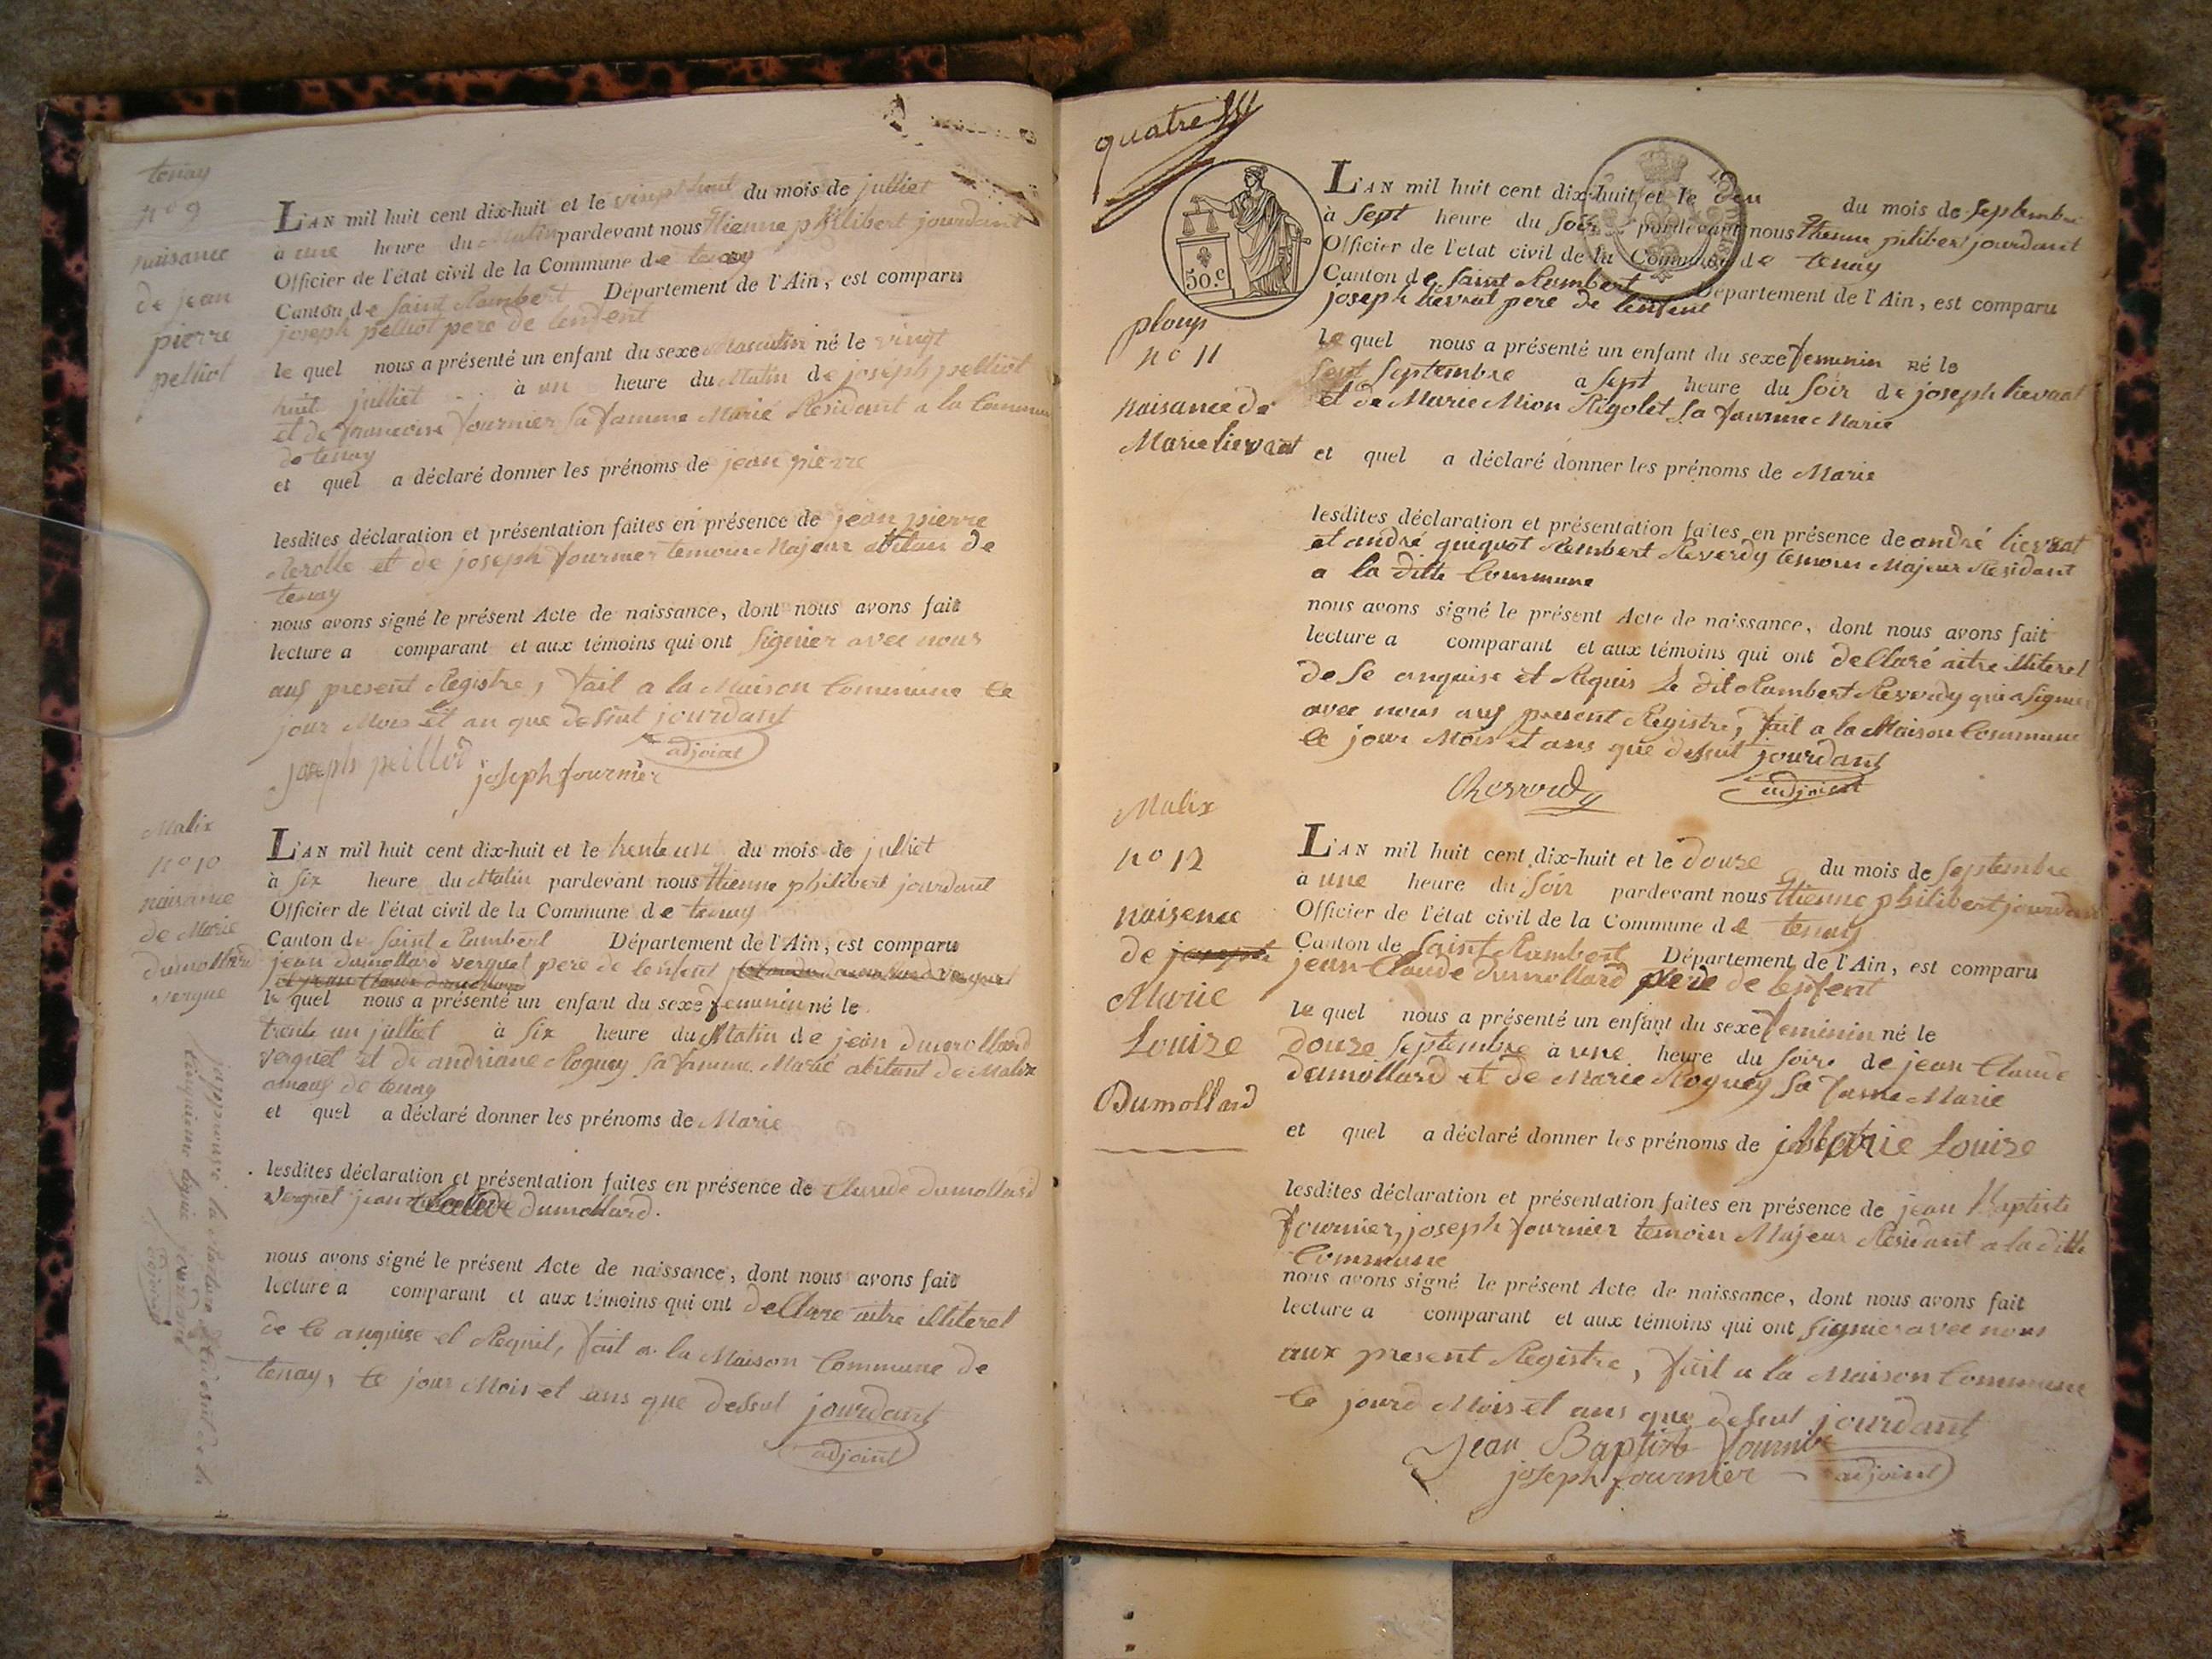 tenay
n° 9
naisance
de jean
pierre
pelliot
L'AN mil huit cent dix-huit et le vingt huit du mois de julliet
à une heure du Matin pardevant nous Etienne philibert jourdant
Officier de l'état civil de la Commune de tenay
Canton de Saint Rambert Département de l'Ain, est comparu
joseph pelliot pere de lenfent
le quel nous a présenté un enfant du sexe Masculin né le vingt
huit julliet à un heure du Matin de joseph pelliot
et de francoise fournier sa famme Marié Résidant a la Commune
de tenay
et quel a déclaré donner les prénoms de jean pierre
lesdites déclaration et présentation faites en présence de jean pierre
et de joseph fournier temoin Majeur abitan de
tenay
nous avons signé le présent Acte de naissance, dont nous avons fait
lecture a comparant et aux témoins qui ont signier avec nous
aus present Registre, fait a la Maison Commune le
jour Mois et an que dessut jourdant
adjoint
joseph peilliod joseph fournier
Malix
n° 10
naisance
de Marie
dumollard
vergue
L'AN mil huit cent dix-huit et le trente un du mois de julliet
à six heure du Matin pardevant nous Etienne philibert jourdant
Officier de l'état civil de la Commune de tenay
Canton de Saint Rambert Département de l'Ain, est comparu
jean dumollard verguet pere de lenfent
le quel nous a présenté un enfant du sexe feminin né le
trente un julliet à six heure du Matin de jean dumollard
verguet et de andriane Roguey sa famme Marié abitant de Malix
amaus de tenay
et quel a déclaré donner les prénoms de Marie
lesdites déclaration et présentation faites en présence de Claude dumollard
verguet jean Claude dumollard.
nous avons signé le présent Acte de naissance, dont nous avons fait
lecture a comparant et aux témoins qui ont decllare aitre illiterel
de ce anquise et Requit, fait a la Maison Commune de
tenay, le jour Mois et ans que dessut jourdant
adjoint
japprouve la
cinquieme ligne jourdant
adjoint
quatre
50.c
ploup
n° 11
naisance de
Marie lievrat
L'AN mil huit cent dix-huit et le du mois de septembre
à sept heure du soir pardevant nous Etienne pilibert jourdant
Officier de l'etat civil de la Commune de tenay
Canton de Saint Rambert Département de l'Ain, est comparu
joseph lievrat pere de lenfent
le quel nous a présenté un enfant du sexe feminin né le
sept septembre a sept heure du soir de joseph lievrat
et de Marie Mion Rigolet sa famme Marie
et quel a déclaré donner les prénoms de Marie
lesdites déclaration et présentation faites en présence de andré lievrat
et andré guiguot Rambert Reverdy temoin Majeur Résidant
a la ditte Commune
nous avons signé le présent Acte de naissance, dont nous avons fait
lecture a comparant et aux témoins qui ont decllaré aitre illiterel
de se anquise et Requis le dit Rambert Reverdy qui a signier
avec nous aus present Registre, fait a la Maison Commune
le jour Mois et ans que dessut jourdant
adjoint
Reverdy
Malix
n° 12
naisence
de joseph
Marie
Louize
Dumollard
L'AN mil huit cent dix-huit et le douze du mois de septembre
à une heure du soir pardevant nous Etienne philibert jourdant
Officier de l'état civil de la Commune de tenay
Canton de Saint Rambert Département de l'Ain, est comparu
jean Claude dumollard pere de lenfent
le quel nous a présenté un enfant du sexe feminin né le
douze septembre à une heure du soir de jean Claude
dumollard et de Marie Roguey sa famme Marie
et quel a déclaré donner les prénoms de Marie Louize
lesdites déclaration et présentation faites en présence de jean Baptiste
fournier, joseph fournier temoin Majeur Résidant a la ditte
Commune
nous avons signé le présent Acte de naissance, dont nous avons fait
lecture a comparant et aux témoins qui ont signier avec nous
aux present Registre, fait a la Maison Commune
le jourd Mois et ans que dessut jourdant
adjoint
Jean Baptiste fournier
joseph fournier